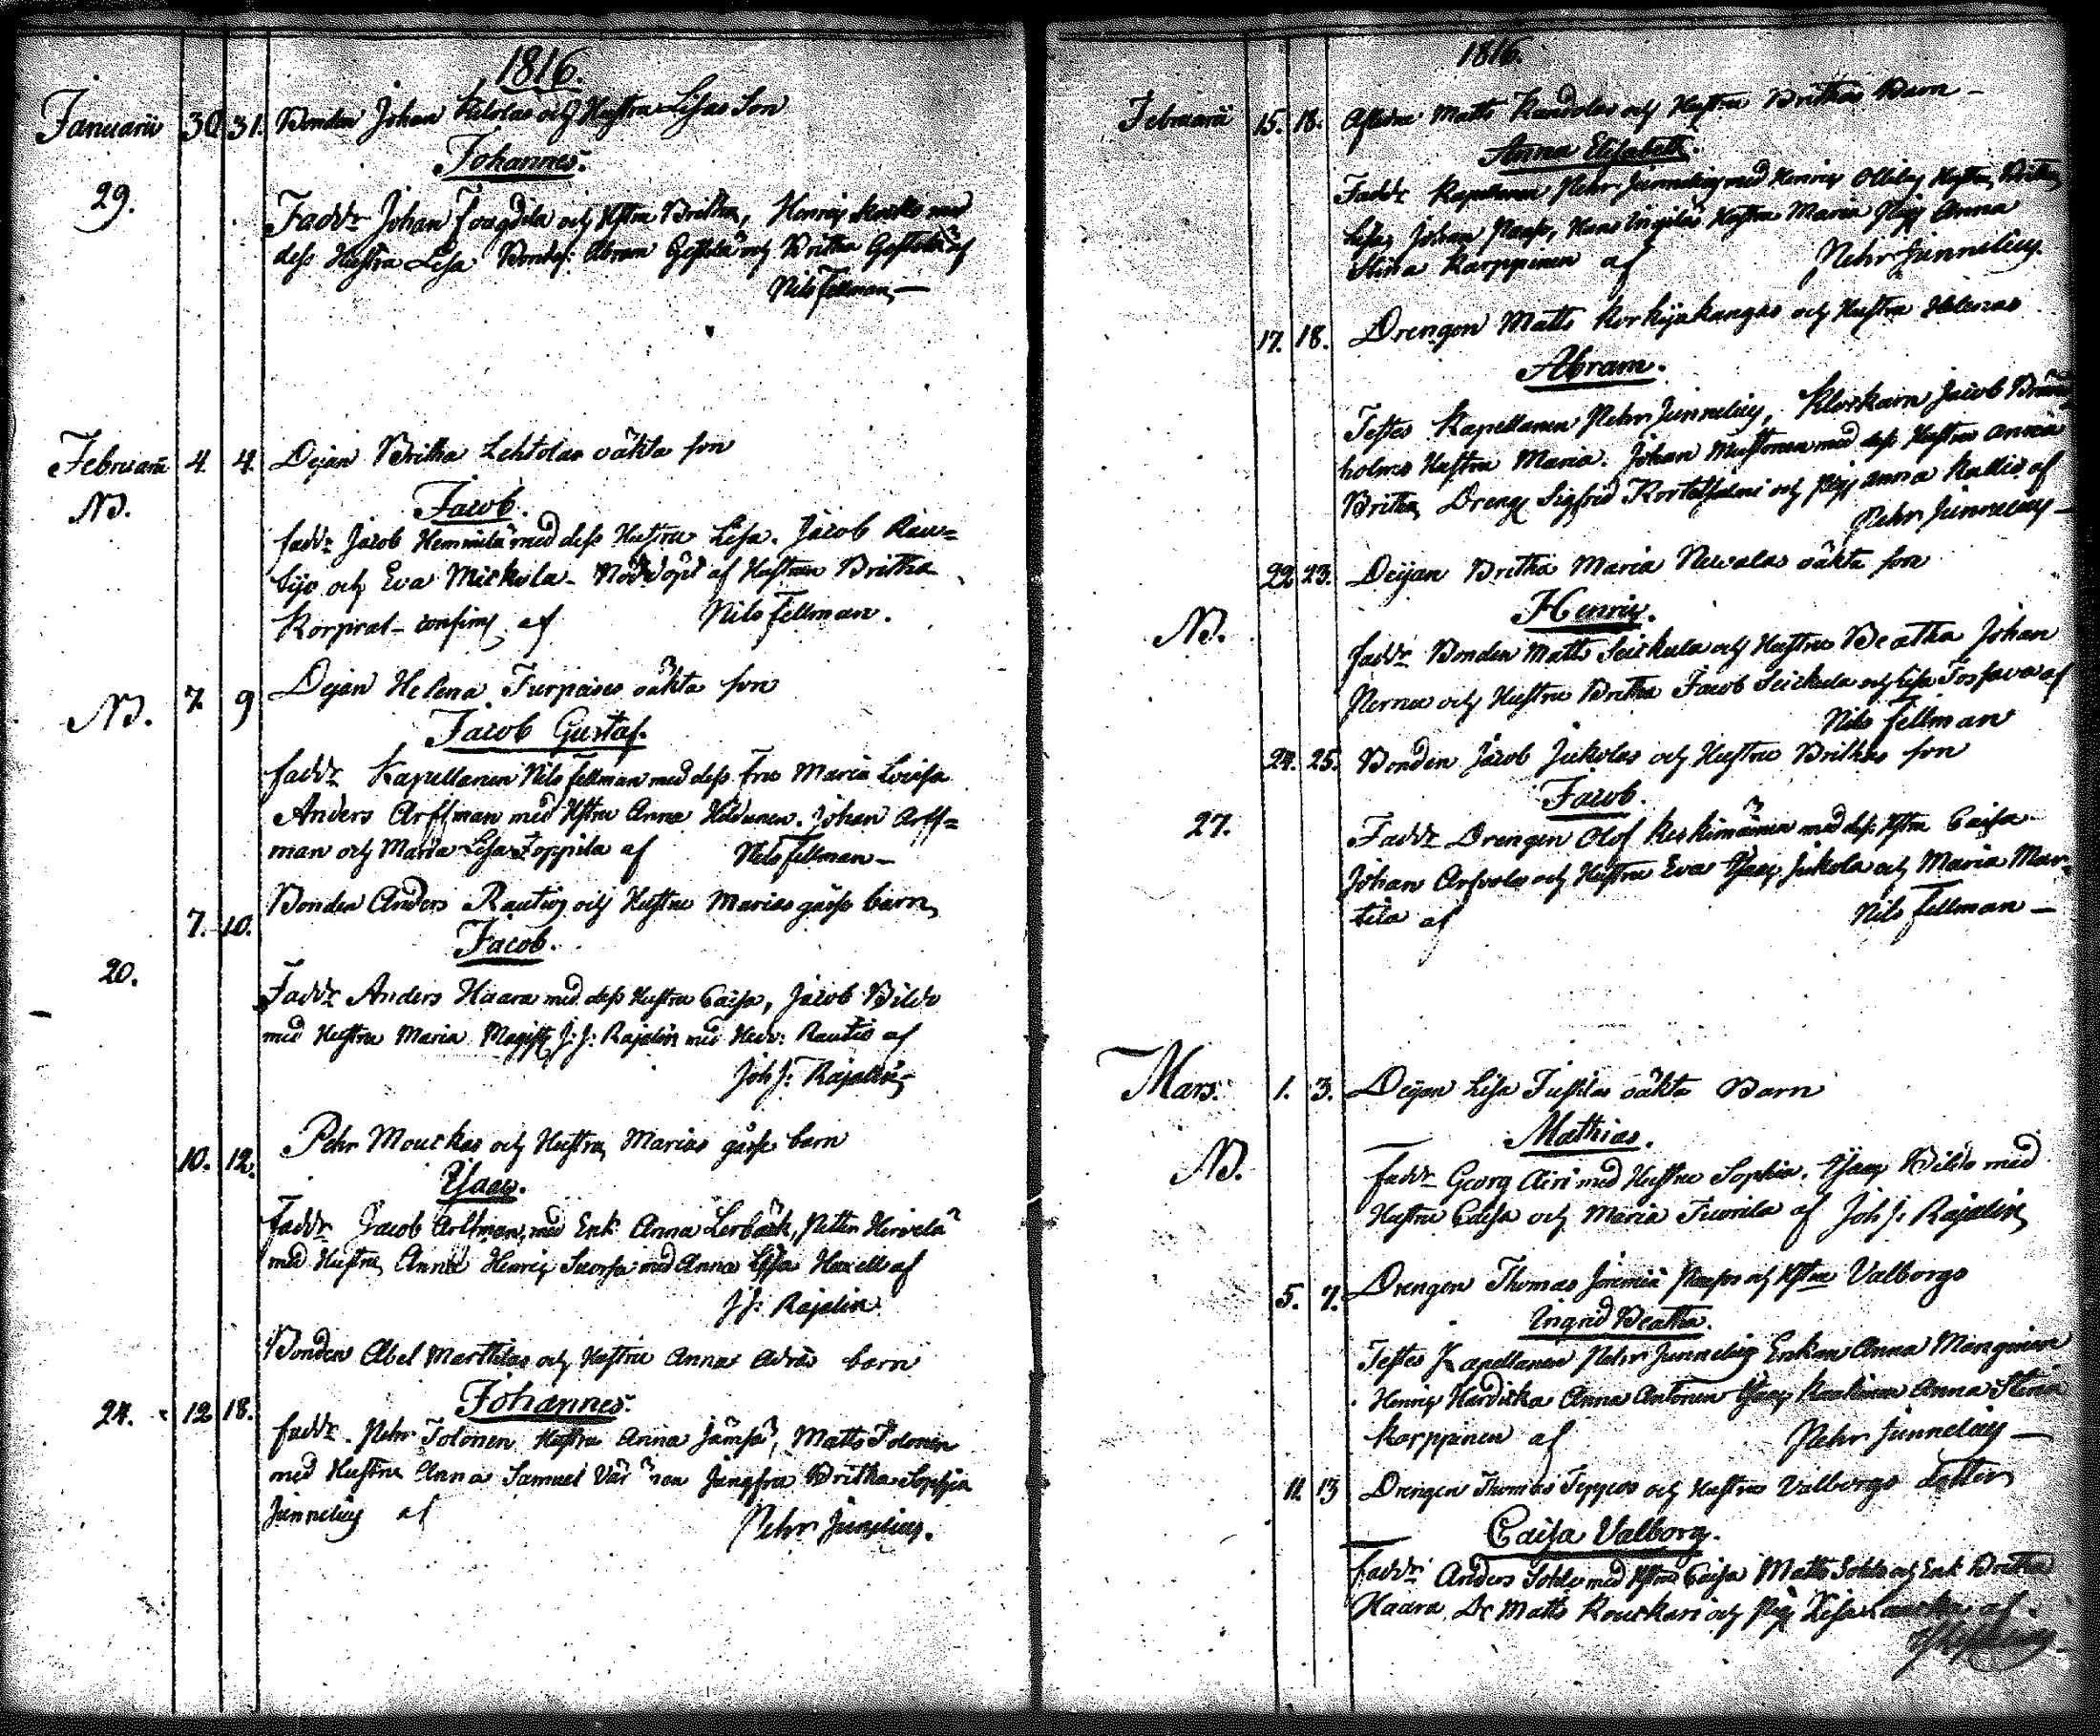 1816.
Januarii 30. 31. Bonden Johan Kilolas och Hustru Lisas Son
Johannes.
29.
Faddr Johan Fougdila och Hstru Britha, Henric med
dess Hustru Lisa Abram och Britha af
Nils Fellman
Februarii 4. 4. Dejan Britha Lehtolas oäkta son
NB.
Jacob.
faddr Jacob Hemmilä med dess Hustru Lisa. Jacob Rau=
tijo och Eva Mickola. Nöddöpt af Hustrun Britha
Korpirat confirm af Nils Fellman.
NB. 7. 9 Dejan Helena Turpeises oäkta son
Jacob Gustaf.
faddr Kapellanen Nils Fellman med dess Fru Maria Lovisa
Anders Arffman med Hstru Anna Hildunen. Johan Arff=
man och Maria Lisa Toppila af Nils Fellman
7. 10. Bonden Anders Rautios och Hustru Marias gåsse barn
Jacob.
20.
Faddr Anders Haara med dess Hustru Caisa, Jacob Bildo
med Hustru Maria Magistr J: J: Rajalin med Hedv: Rautio af
Joh J: Rajalin
10. 12. Pehr Mourkas och Hustru Marias gåsse barn
Ysaac.
Faddr Jacob Arffman, med Enk. Anna Lerbäck, Petter Hirvelä
med Hustru Anna Henric Suorsa med Anna Lisa Haxell af
J J: Rajalin
Bonden Abel Marttilas och Hustru Anna barn
24. 12 18. Johannes.
faddr. Pehr Tolonen Hustru Anna Jämsä, Matts Tolonen
med Hustru Anna Samuel Jungfru Britha Sophia
Junnelius af Pehr Junelius.
1816.
Februarii 15. 18. Matts Kandolas och Hustru Brithas Barn
Anna Elisabeth.
Faddr Kapellanen Pehr Junnelius med Henric Hustru Britha
Lisa, Johan Paaso, Hans Hustru Maria Pig Anna
Stina Karppinen af Pehr Junnelius.
17. 18. Drengen Matts Korkijakangas och Hustru Helenas
Abram.
Testes Kapellanen Pehr Junnelius, Klockarn Jacob
holms Hustru Maria. Johan Mustonen med dess Hustru Anna
Britha, Dreng Sigfrid Kortetjalmi och Pig Anna Kallio af
Pehr Junnelius
22 23. Deijan Britha Maria Newalas oäkta son
Henric.
NB.
faddr Bonden Matts Seickula och Hustru Beatha Johan
Perna och Hustru Britha Jacob Seickula och Lisa Tossava af
Nils Fellman
24. 25. Bonden Jacob Jukolas och Hustru Brithas son
Jacob.
27.
Faddr Drengen Olof Keskimäinen med dess Hstru Caisa
Johan Arfvola och Hustru Eva Ysaac Jukola och Maria Mar-
tila af Nils Fellman
Mars: 1. 3. Deijan Lisa Jussilas oäkta Barn
Mathias.
NB.
faddr Georg Airi med Hustru Sophia. Ysaac Bildo med
Hustru Caisa och Maria Tuorila af Joh J: Rajalin
5. 7. Drengen Thomas Jeremiæ Paasos och Hstru Valborgs
Ingrid Beatha.
Testes Kapellanen Pehr Junnelius Enkan Anna Manguinen
Henric Hardicka Anna Antonen Ysaac Kaakinen Anna Stina
Karppinen af Pehr Junnelius
11 13 Drengen Thomas Teppos och Hustrus Valborgs dotter
Caisa Valborg.
faddr Anders Sohlo med Hstru Caisa Matts Sohlo och Enk Britha
Haara, Dr Matts Kourkari och Pig Lisa af